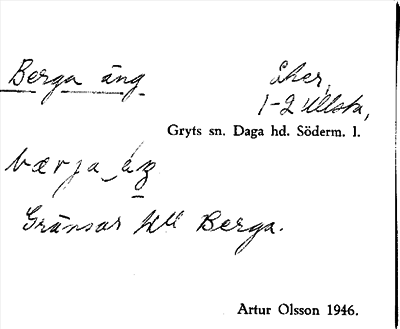 Berga äng
åker,
1-2 Ullsta,
Gryts sn. Daga hd. Söderm. l.
bærja
Gränsar till Berga.
Artur Olsson 1946.